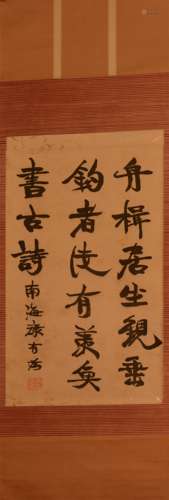 舟楫居坐観垂
釣者徒有羨魚
書古詩 南海康有為